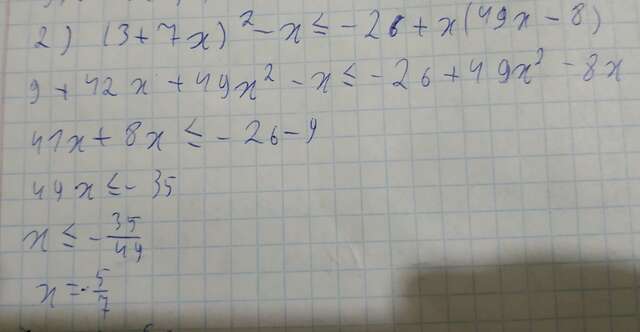 2) (3+7x)² - x ≤ -26 + x(49x - 8)
9 + 42x + 49x² - x ≤ -26 + 49x² - 8x
41x + 8x ≤ -26 - 9
49x ≤ -35
x ≤ -35/49
x = -5/7